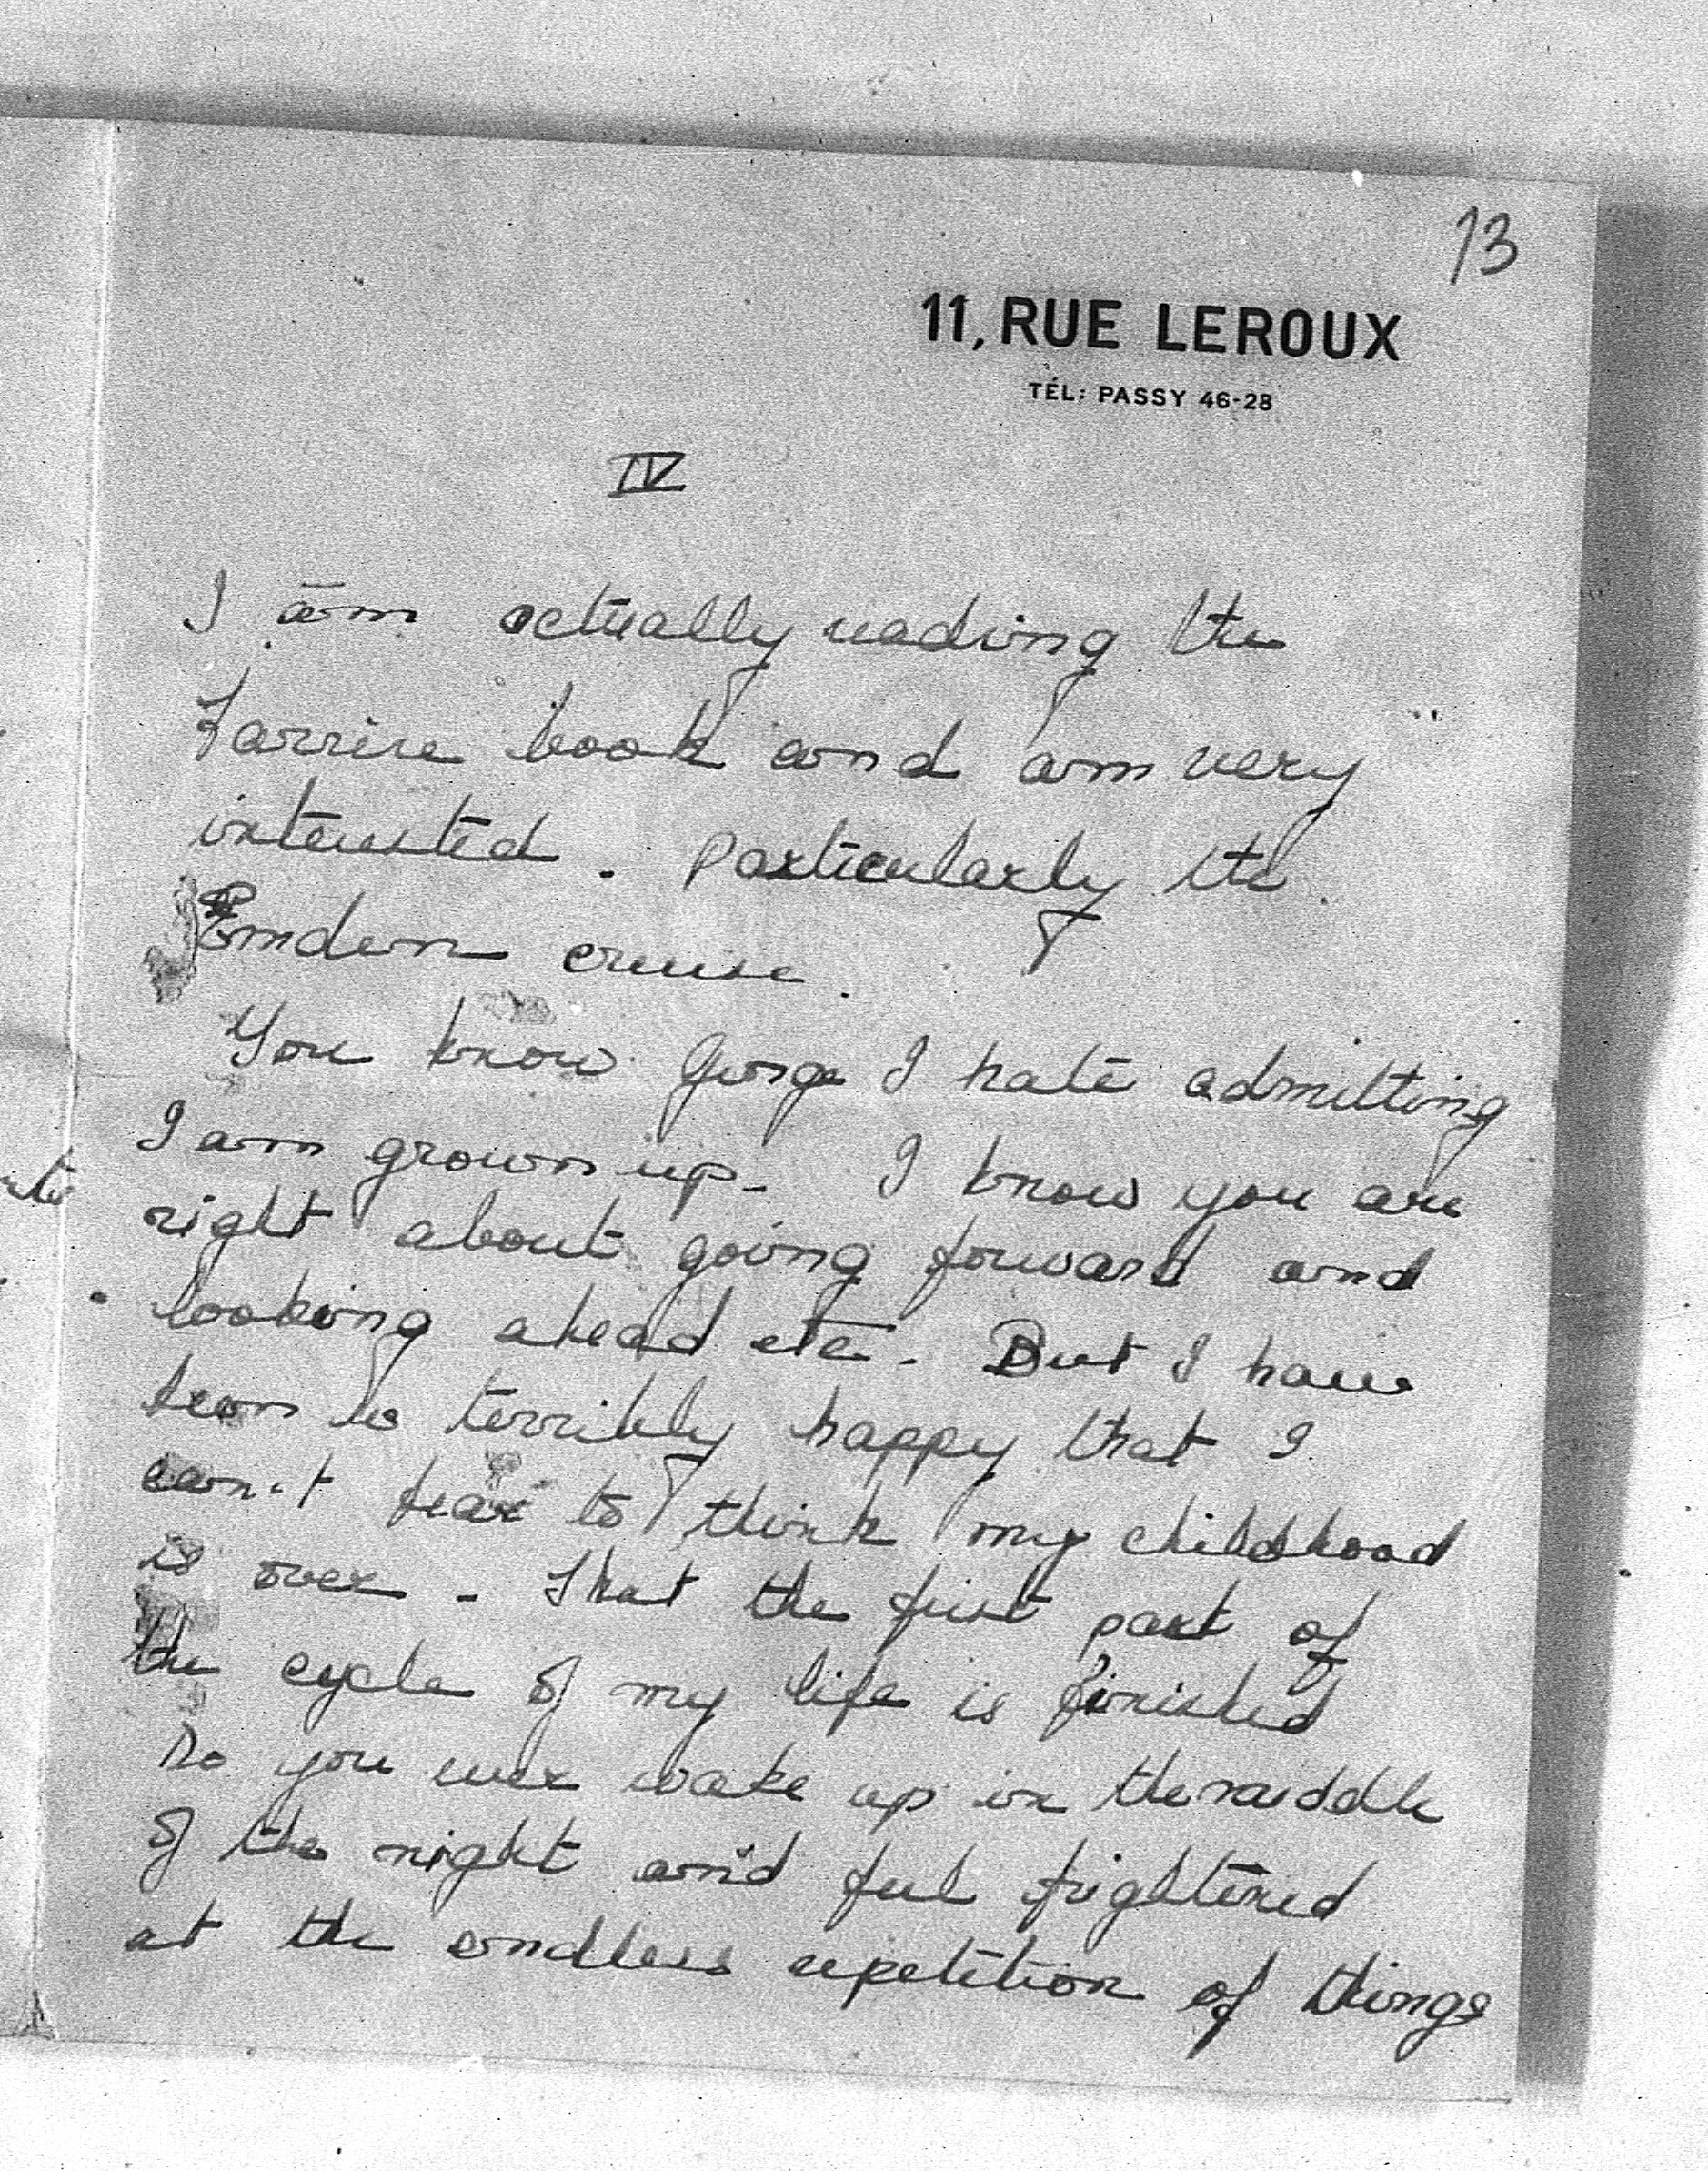 13
11, RUE LEROUX
TÉL: PASSY 46-28
IV
I am actually reading the
book and am very
interested. Particularly the
Emden cruise.
You know George I hate admitting
I am grown up - I know you are
right about going forward and
looking ahead etc. But I have
been so terribly happy that I
can't bear to think my childhood
is over - That the first part of
the cycle of my life is finished
Do you ever wake up in the middle
of the night and feel frightened
at the endless repetition of things